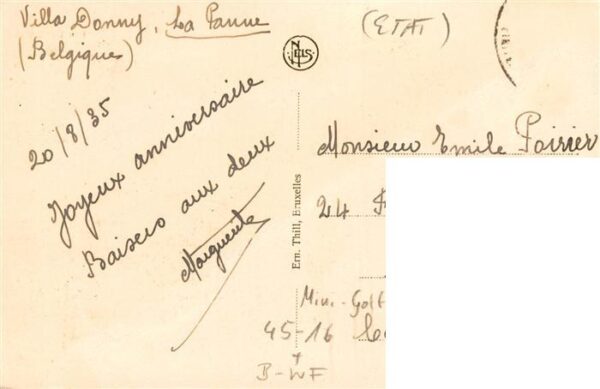 Villa Donny, La Panne
(Belgique)
(ETAT)
NELS
20/8/35
Joyeux anniversaire
Baisers aux deux
Marguerite
Ern. Thill, Bruxelles
Monsieur Emile Poirier
24
Mini-Golf
45-16
B-WF